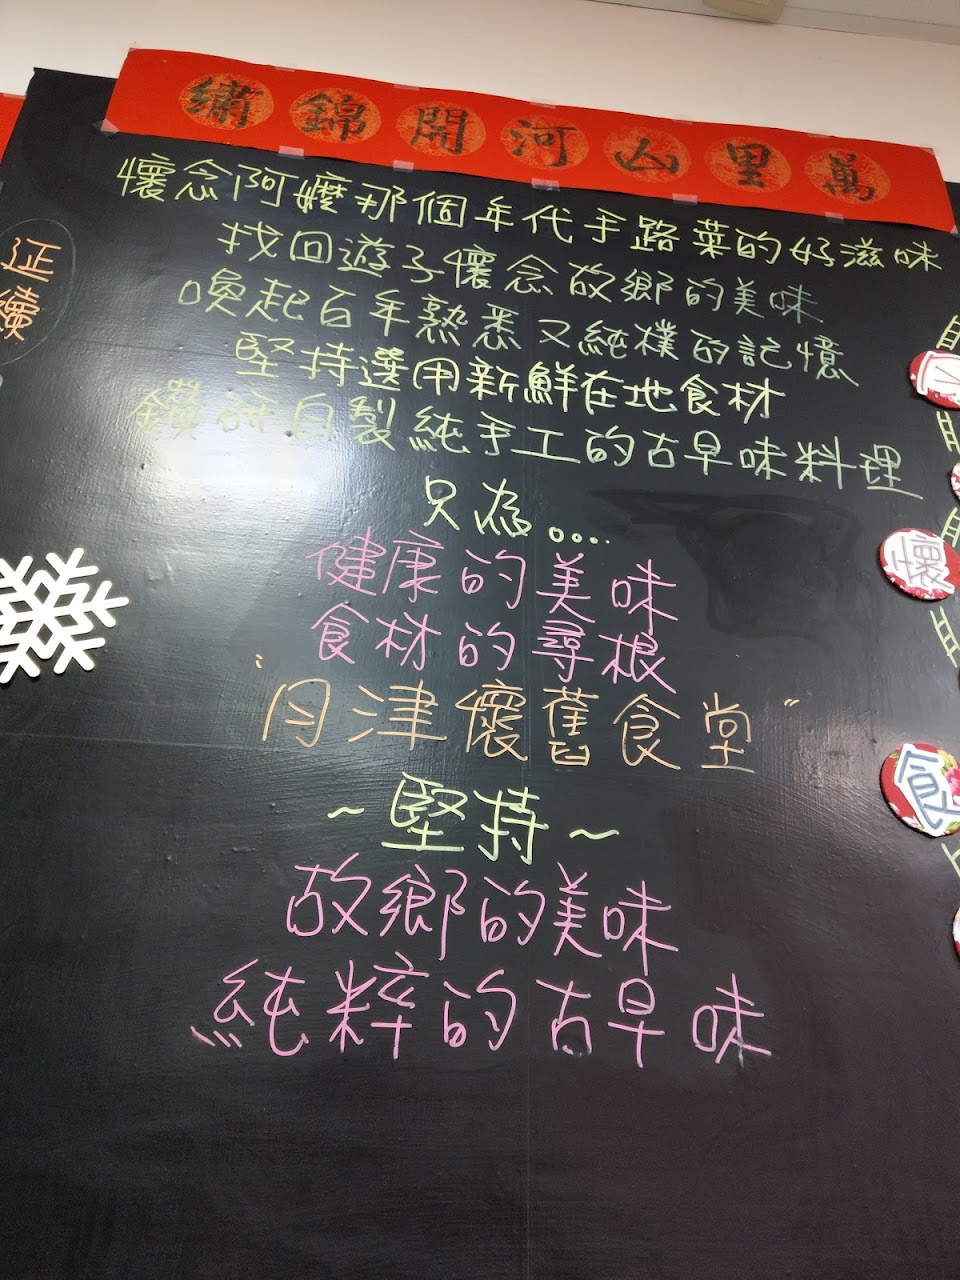 萬里山河開錦繡
懷念阿嬤那個年代手路菜的好滋味
找回遊子懷念故鄉的美味
喚起百年熟悉又純樸的記憶
堅持選用新鮮在地食材
鑽研自製純手工的古早味料理
只為....
健康的美味
食材的尋根
"月津懷舊食堂"
~堅持~
故鄉的美味
純粹的古早味
懷
食